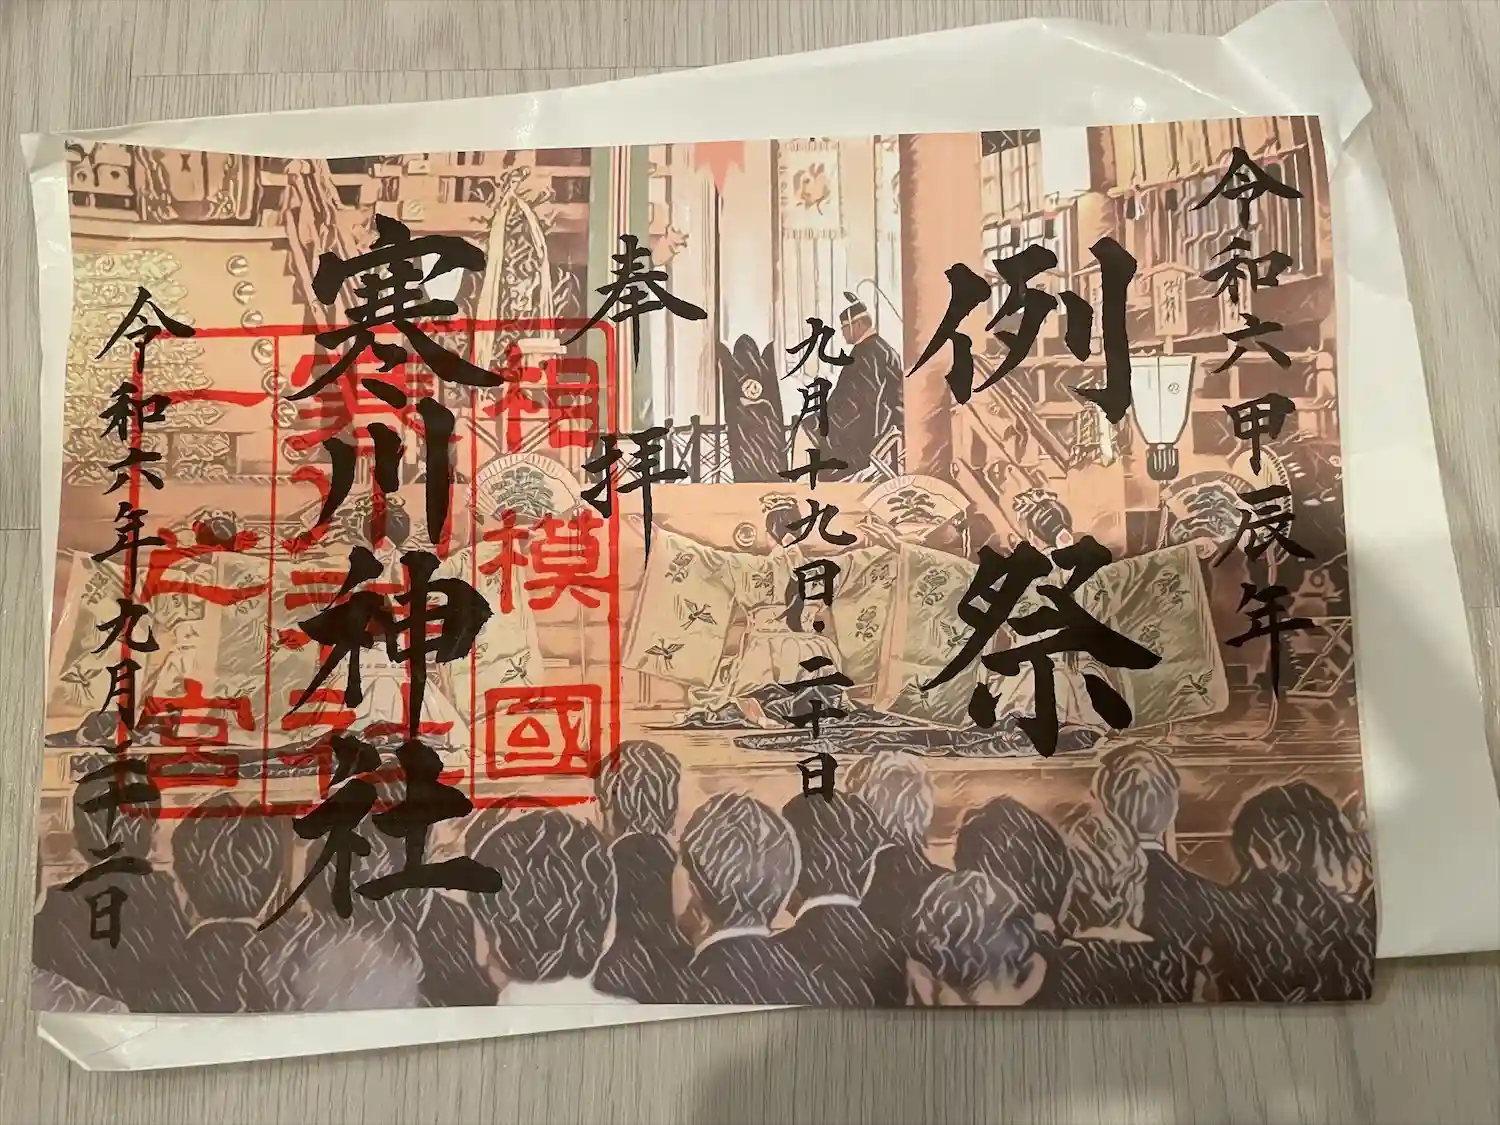 令和六甲辰年
例祭
九月十九日・二十日
奉拝
寒川神社
令和六年九月二十二日
相模國
寒川神社
一之宮